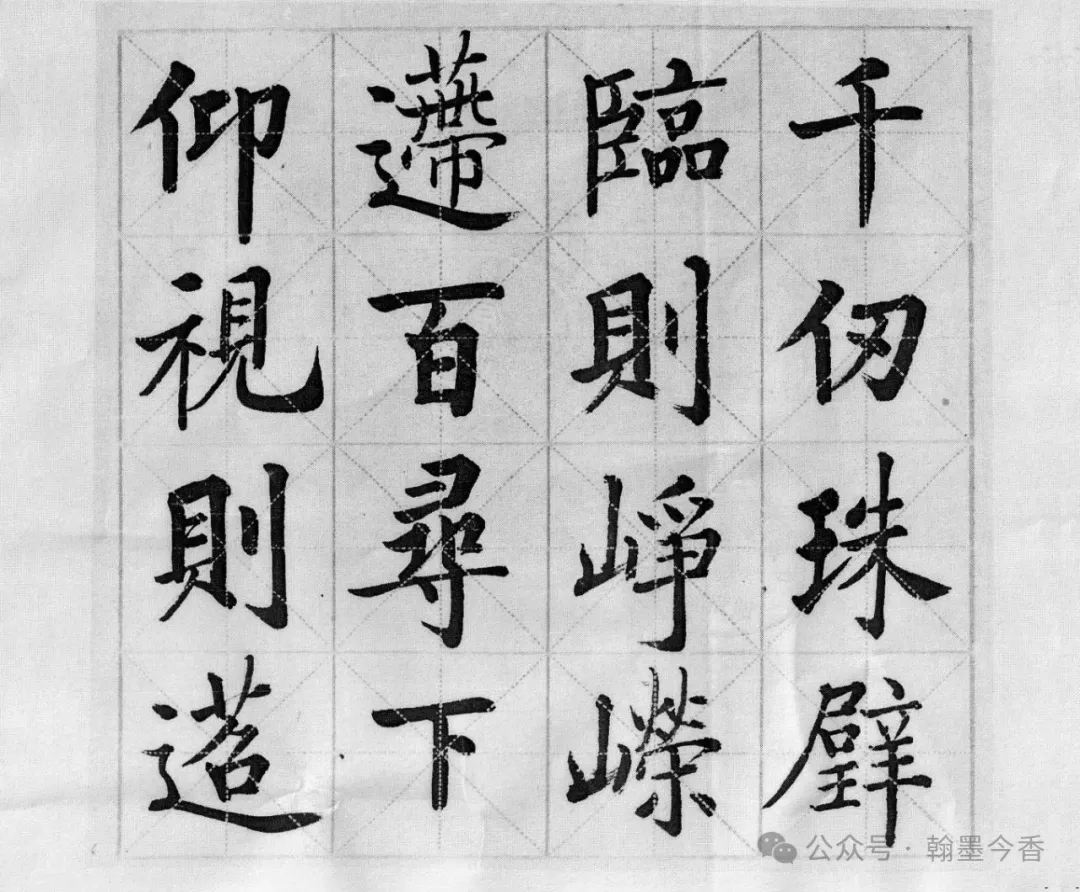 仰視則迢
遰百尋下
臨則崢嶸
千仞珠璧
公众号·翰墨今香